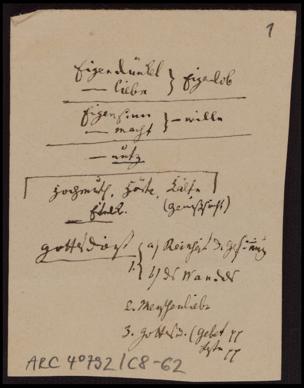 1
Eigendünkel } Eigenlob
— liebe
Eigensinn } — wille
— macht
— nutz
Hochmuth, Härte, Kälte
Eitelk. 
Gottesdienst a) Reinheit d. Gesinnung
1. b) des Wandels
2. Menschenliebe
3. Gottesd. (Gebet
ARC 40792/C8-62